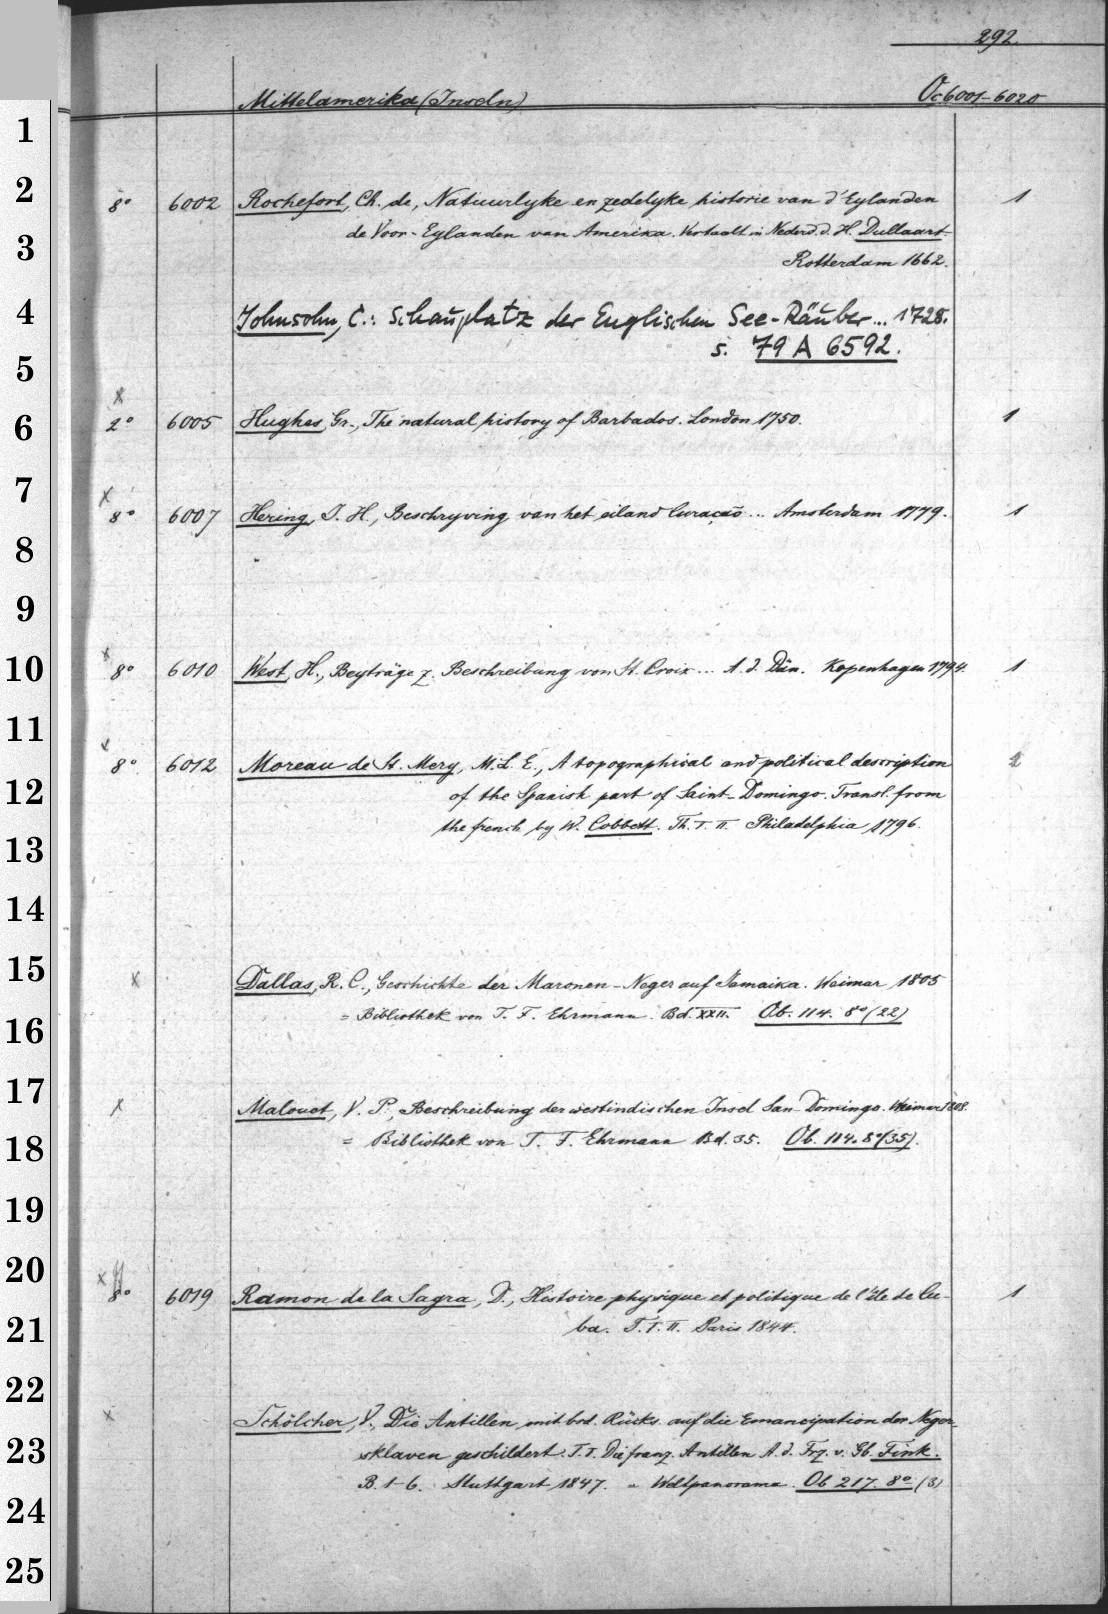 292.
Mittelamerika (Inseln)
Oc 6001-6020
1
2
8° 6002 Rochefort, Ch. de, Natuurlyke en zedelyke historie van d'Eylanden 1
3
de Voor-Eylanden van Amerika. Vertaalt in Nederd. d. H. Dullaart
Rotterdam 1662.
4
Johnsohn, C.: Schauplatz der Englischen See-Räuber... 1728.
s. 79 A 6592.
5
x
6
2° 6005 Hughes, Gr., The natural history of Barbados. London 1750. 1
7
x
8° 6007 Hering, J. H., Beschryving van het eiland Curaçao ... Amsterdam 1779. 1
8
9
x
10
8° 6010 West, H., Beyträge z. Beschreibung von St. Croix ... A. d. Dän. Kopenhagen 1794. 1
11
8° 6012 Moreau de St. Mery, M. L. E., A topographical and political description 2
12
of the Spanish part of Saint-Domingo. Transl. from
the french by W. Cobbett. Th. I. II. Philadelphia, 1796.
13
14
15
x Dallas, R. C., Geschichte der Maronen-Neger auf Jamaika. Weimar 1805
16
= Bibliothek von T. F. Ehrmann. Bd. XXII. Ob. 114. 8° (22)
17
x Malouet, V. P., Beschreibung der westindischen Insel San-Domingo. Weimar 1808.
18
= Bibliothek von T. F. Ehrmann Bd. 35. Ob. 114. 8° (35).
19
20
x
8° 6019 Ramon de la Sagra, D., Histoire physique et politique de l'île de Cu- 1
21
ba. T. I. II. Paris 1844.
22
x Schölcher, V., Die Antillen mit bes. Rücks. auf die Emancipation der Neger-
23
sklaven geschildert. T. I. Die franz. Antillen A. d. Frz. v. Gb. Fink.
B. 1-6. Stuttgart, 1847. = Weltpanorama. Ob 217. 8° (3)
24
25